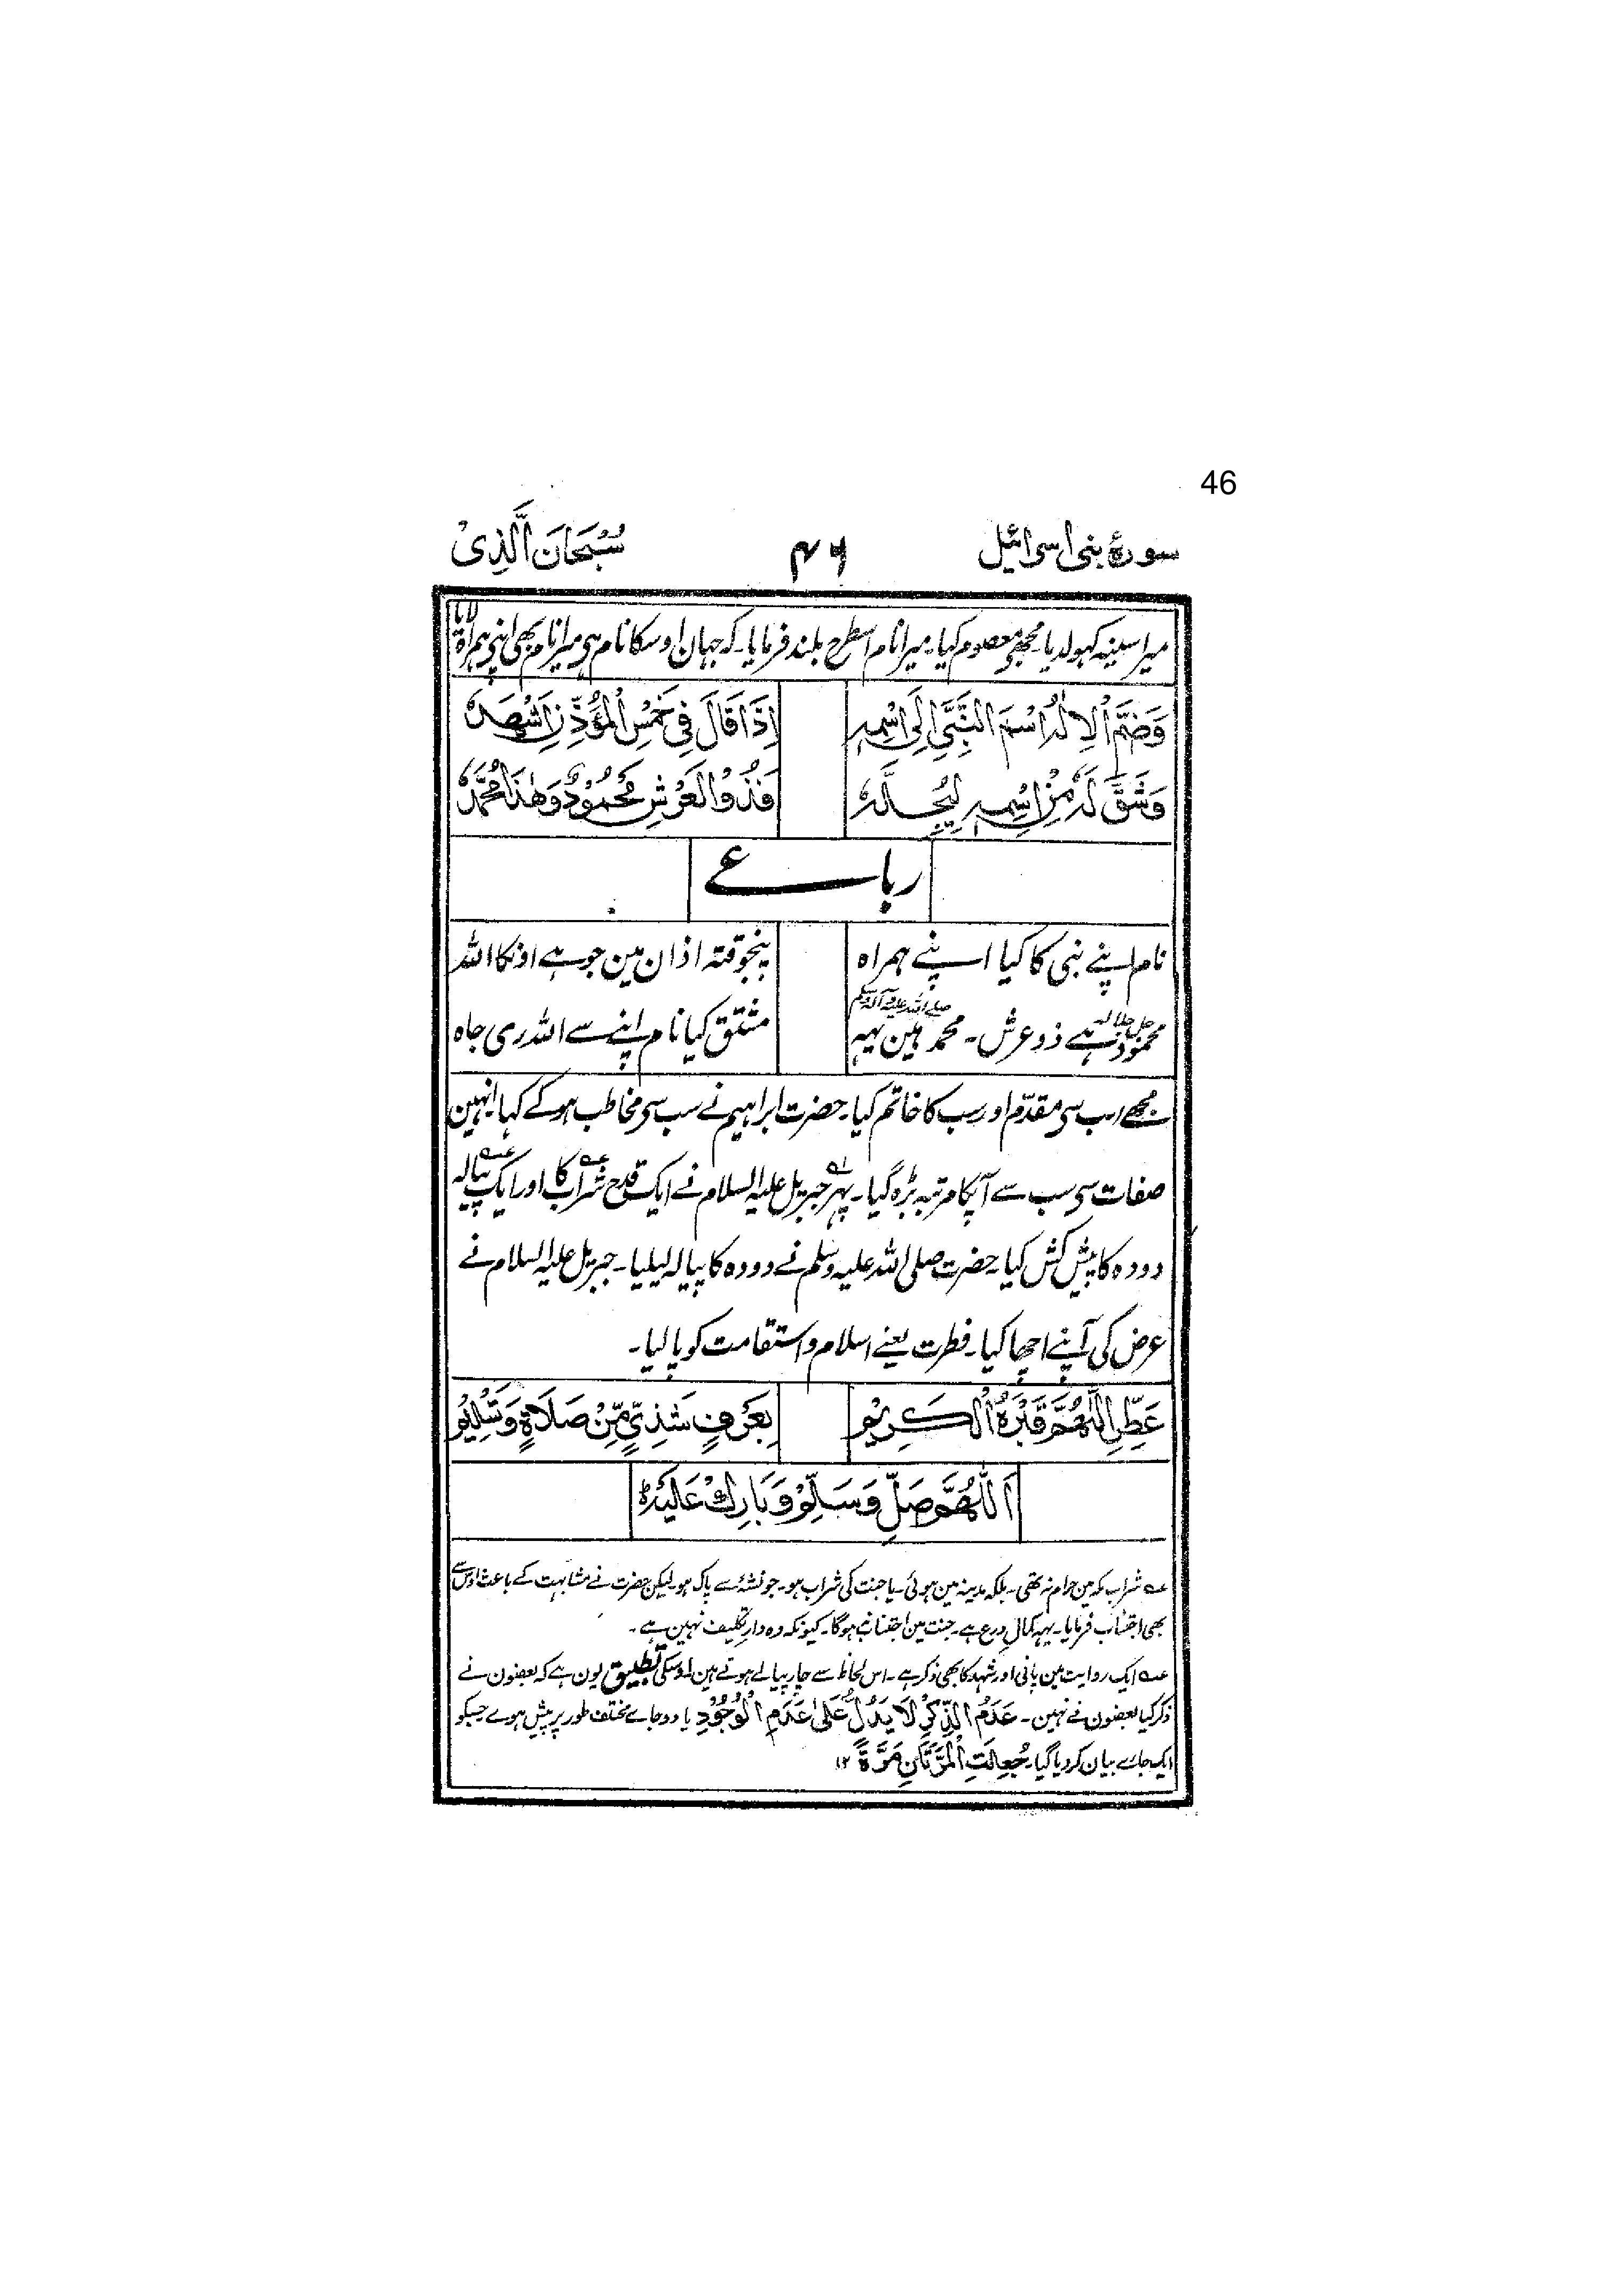 46
سورۂ بنی اسرائیل ۴۶ سُبْحَانَ الَّذِیْ
میرا سینہ کہولدیا۔ مجھے معصوم کیا۔ میرا نام اسطرح بلند فرمایا۔ کہ جہان اوسکا نام ہی میرا نام بھی اپنی ہمراہ لایا
وَضَمَّ الْاِلٰهُ اسْمَ النَّبِيِّ اِلَى اسْمِهٖ اِذَا قَالَ فِي خَمْسِ الْمُؤَذِّنِ اَشْهَدُ
وَشَقَّ لَهٗ مِنْ اِسْمِهٖ لِيُجِلَّهٗ فَذُو الْعَرْشِ مَحْمُوْدٌ وَهٰذَا مُحَمَّدٌ
رباعے
نام اپنے نبی کا کیا اپنے ہمراہ پنجوقتہ اذان مین جو ہے اونکا اللہ
محمود جل جلالہ ہے ذو عرش۔ محمد صلے اللہ علیہ وآلہ وسلم ہین یہہ مشتق کیا نام اپنے سے اللہ ری جاہ
مجھے سب سی مقدّم اور سب کا خاتم کیا۔ حضرت ابراہیم نے سب سی مخاطب ہو کے کہا۔ انہین
صفات سی سب سے آپکا مرتبہ بڑہ گیا۔ پہر جبریل علیہ السلام نے ایک قدح شراب کا اور ایک پیالہ
دودہ کا پیش کش کیا۔ حضرت صلی اللہ علیہ وسلم نے دودہ کا پیالہ لیلیا۔ جبریل علیہ السلام نے
عرض کی آپنے اچھا کیا۔ فطرت یعنے اسلام و استقامت کو پا لیا۔
عَطِّرِ اللّٰهُمَّ قَبْرَهُ الْكَرِيْمَ بِعَرْفٍ شَذِيٍّ مِّنْ صَلَاةٍ وَتَسْلِيْمٍ
اَللّٰهُمَّ صَلِّ وَسَلِّمْ وَبَارِكْ عَلَيْهِ
عہ شراب مکہ مین حرام نہ تھی۔ بلکہ مدینہ مین ہوئی۔ یا جنت کی شراب ہو۔ جو نشہ سے پاک ہو۔ لیکن حضرت نے مشابہت کے باعث اوس سے
بھی اجتناب فرمایا۔ یہہ کمال ورع ہے۔ جنت مین اجتناب نہوگا۔ کیونکہ وہ دار تکلیف نہین ہے۔
عہ ایک روایت مین پانی اور شہد کا بھی ذکر ہے۔ اس لحاظ سے چار پیالے ہوتے ہین۔ اوسکی تطبیق یون ہے کہ بعضون نے
ذکر کیا بعضون نے نہین۔ عَدَمُ الذِّكْرِ لَا يَدُلُّ عَلٰى عَدَمِ الْوُجُوْدِ یا دو جاے مختلف طور پر پیش ہوے جسکو
ایک جاے بیان کر دیا گیا۔ جُعِلَتِ الْمَرَّتَانِ مَرَّةً ۱۲